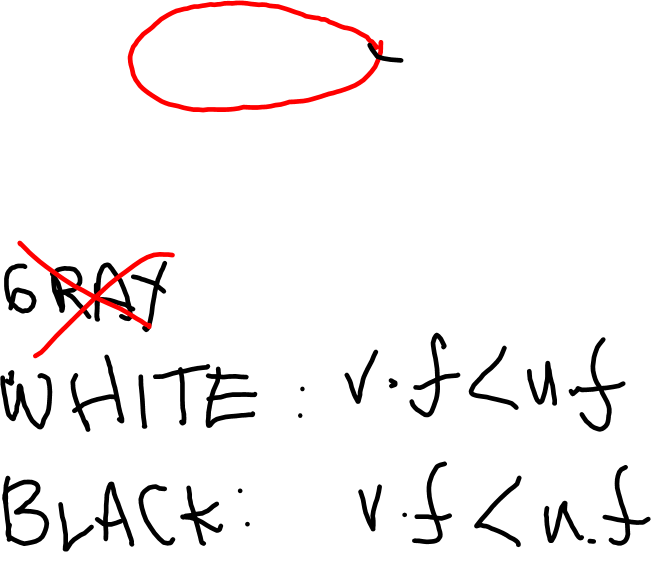 GRAY
WHITE: v.f < u.f
BLACK: v.f < u.f